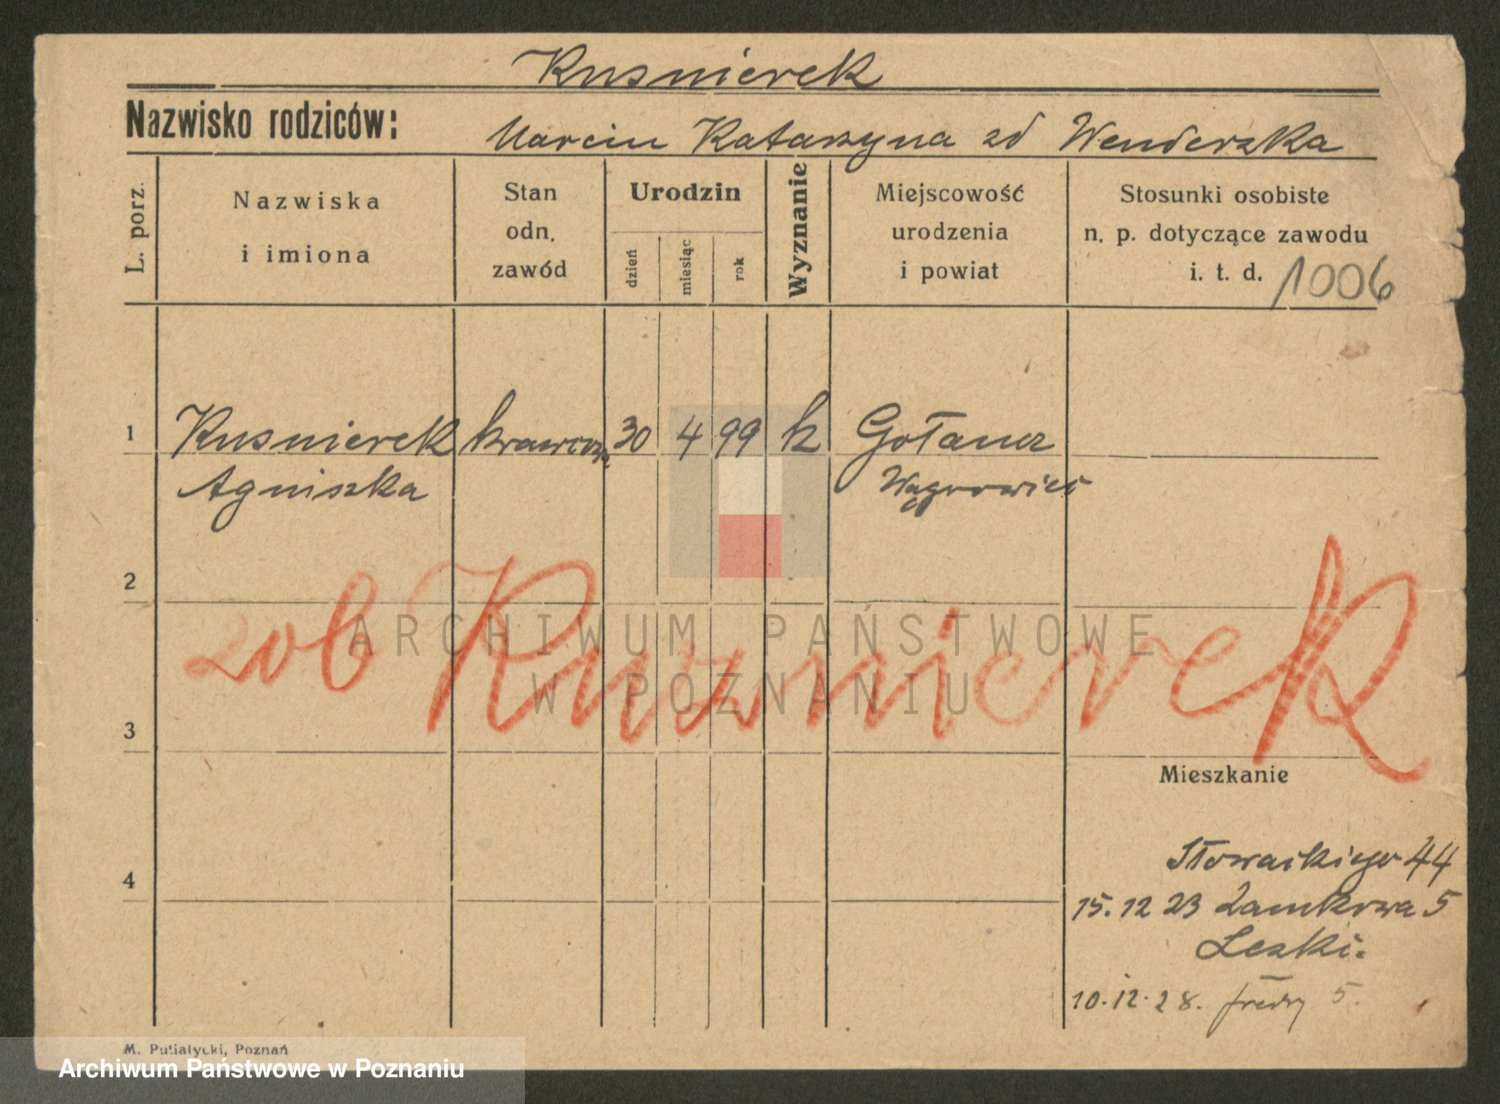 Kusnierek
Nazwisko rodziców:
Marcin Katarzyna zd Wenderska
L. porz.
Nazwiska
i imiona
Stan
odn.
zawód
Urodzin
dzień
miesiąc
rok
Wyznanie
Miejscowość
urodzenia
i powiat
Stosunki osobiste
n. p. dotyczące zawodu
i. t. d. 1006
1 Kusnierek krawcową 30 4 99 k Gołańcz
Agniszka Wągrowiec
2
zob Kuznierek
ARCHIWUM PAŃSTWOWE
W POZNANIU
3
Mieszkanie
4
Słowackiego 44
15.12 23 Zamkowa 5
10.12.28. Fredry 5.
M. Putiatycki, Poznań
Archiwum Państwowe w Poznaniu